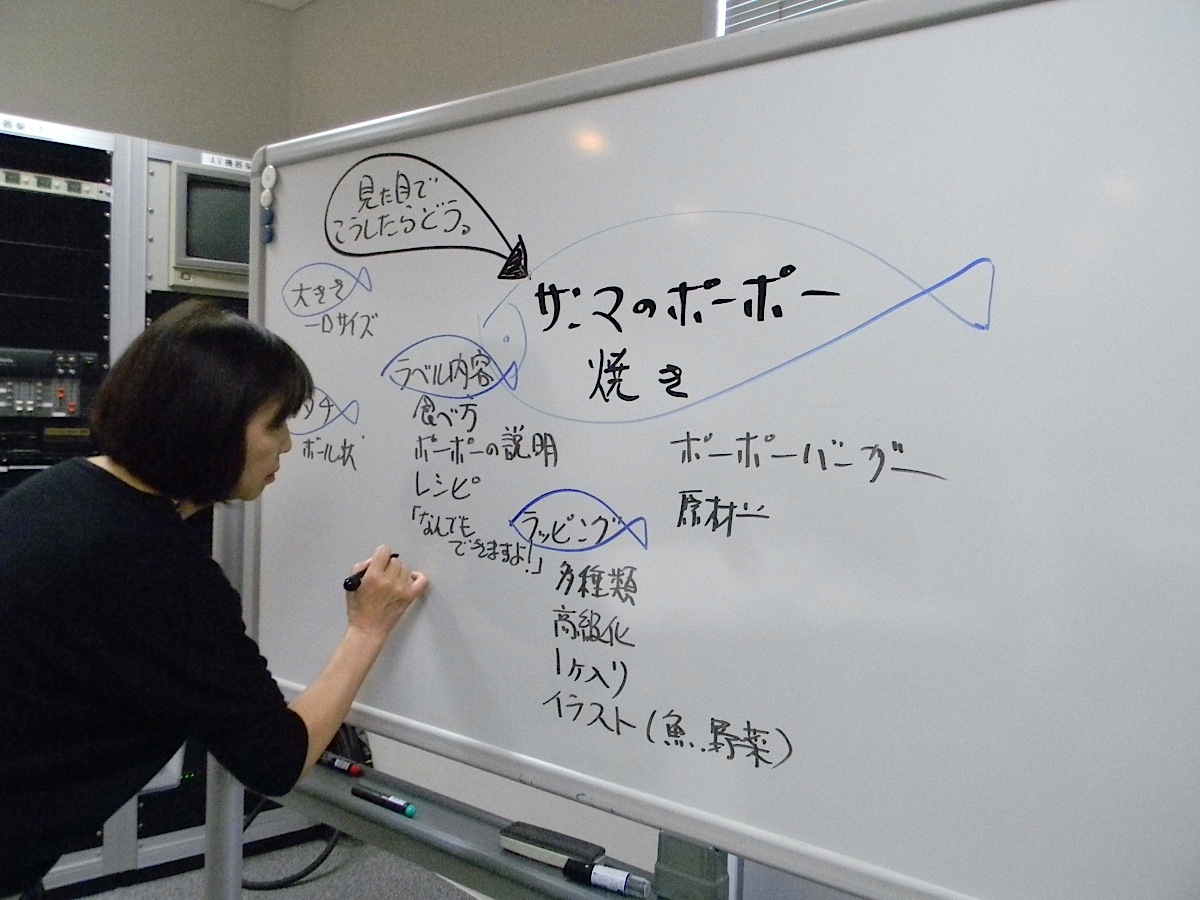 AV機器架
見た目で
こうしたらどう。
サンマのポーポー
焼き
大きさ
一口サイズ
タチ
ボール状
ラベル内容
食べ方
ポーポーの説明
レシピ
「なんでも
できますよ!」
ラッピング
多種類
高級化
1ヶ入り
イラスト(魚.野菜)
ポーポーバーガー
原材